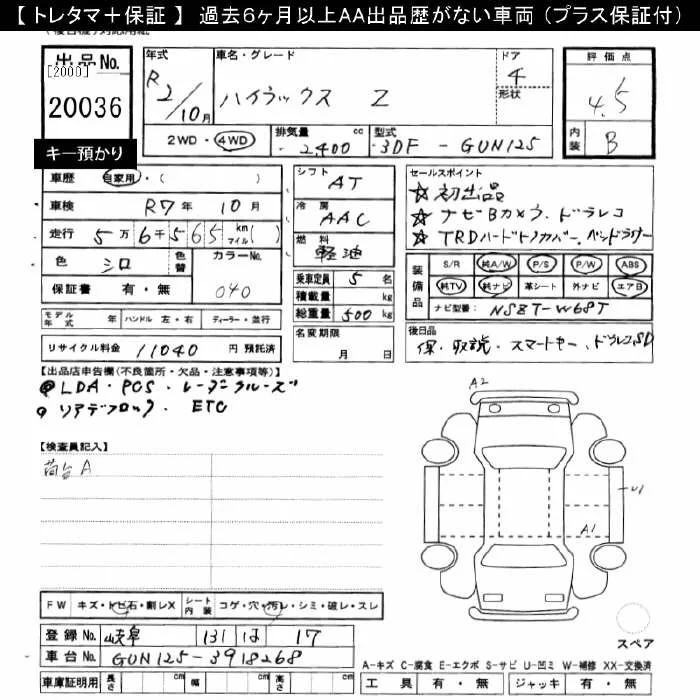 【トレタマ＋保証】 過去6ヶ月以上AA出品歴がない車両（プラス保証付）
出品No. [2000] 20036
キー預かり
年式 R2/10月 車名・グレード ハイラックス Z ドア 4 形状
2WD・4WD 排気量 2,400 cc 型式 3DF-GUN125
評価点 4.5
内装 B
車歴 自家用・( )
車検 R7年 10月
走行 5万6千565 km マイル( )
色 シロ 色替 カラーNo. 040
保証書 有・無
モデル年式 年 ハンドル 左・右 ディーラー・並行
リサイクル料金 11040 円 預託済
シフト AT
冷房 AAC
燃料 軽油
乗車定員 5 名
積載量 kg
総重量 500 kg
名変期限 月 日
セールスポイント
☆初出品
☆ナビBカメラ、ドラレコ
☆TRDハードトノカバー、ベッドラナー
装備品 S/R 純A/W P/S P/W ABS
純TV 純ナビ 革シート 外ナビ エアB
ナビ型番: NSZT-W68T
後日品
保・取説・スマートキー、ドラレコSD
【出品店申告欄(不良箇所・欠品・注意事項等)】
LDA・PCS・レーダークルーズ
リアデフロック・ ETC
【検査員記入】
荷台A
FW キズ・トビ石・割レX シート内装 コゲ・穴・汚レ・シミ・破レ・スレ
登録No. 岐阜 131 は 17
車台No. GUN125-3918268
車庫証明用 長さ cm 幅 cm 高さ cm
A2
U1
A1
スペア
A-キズ C-腐食 E-エクボ S-サビ U-凹ミ W-補修 XX-交換済
工具 有・無 ジャッキ 有・無